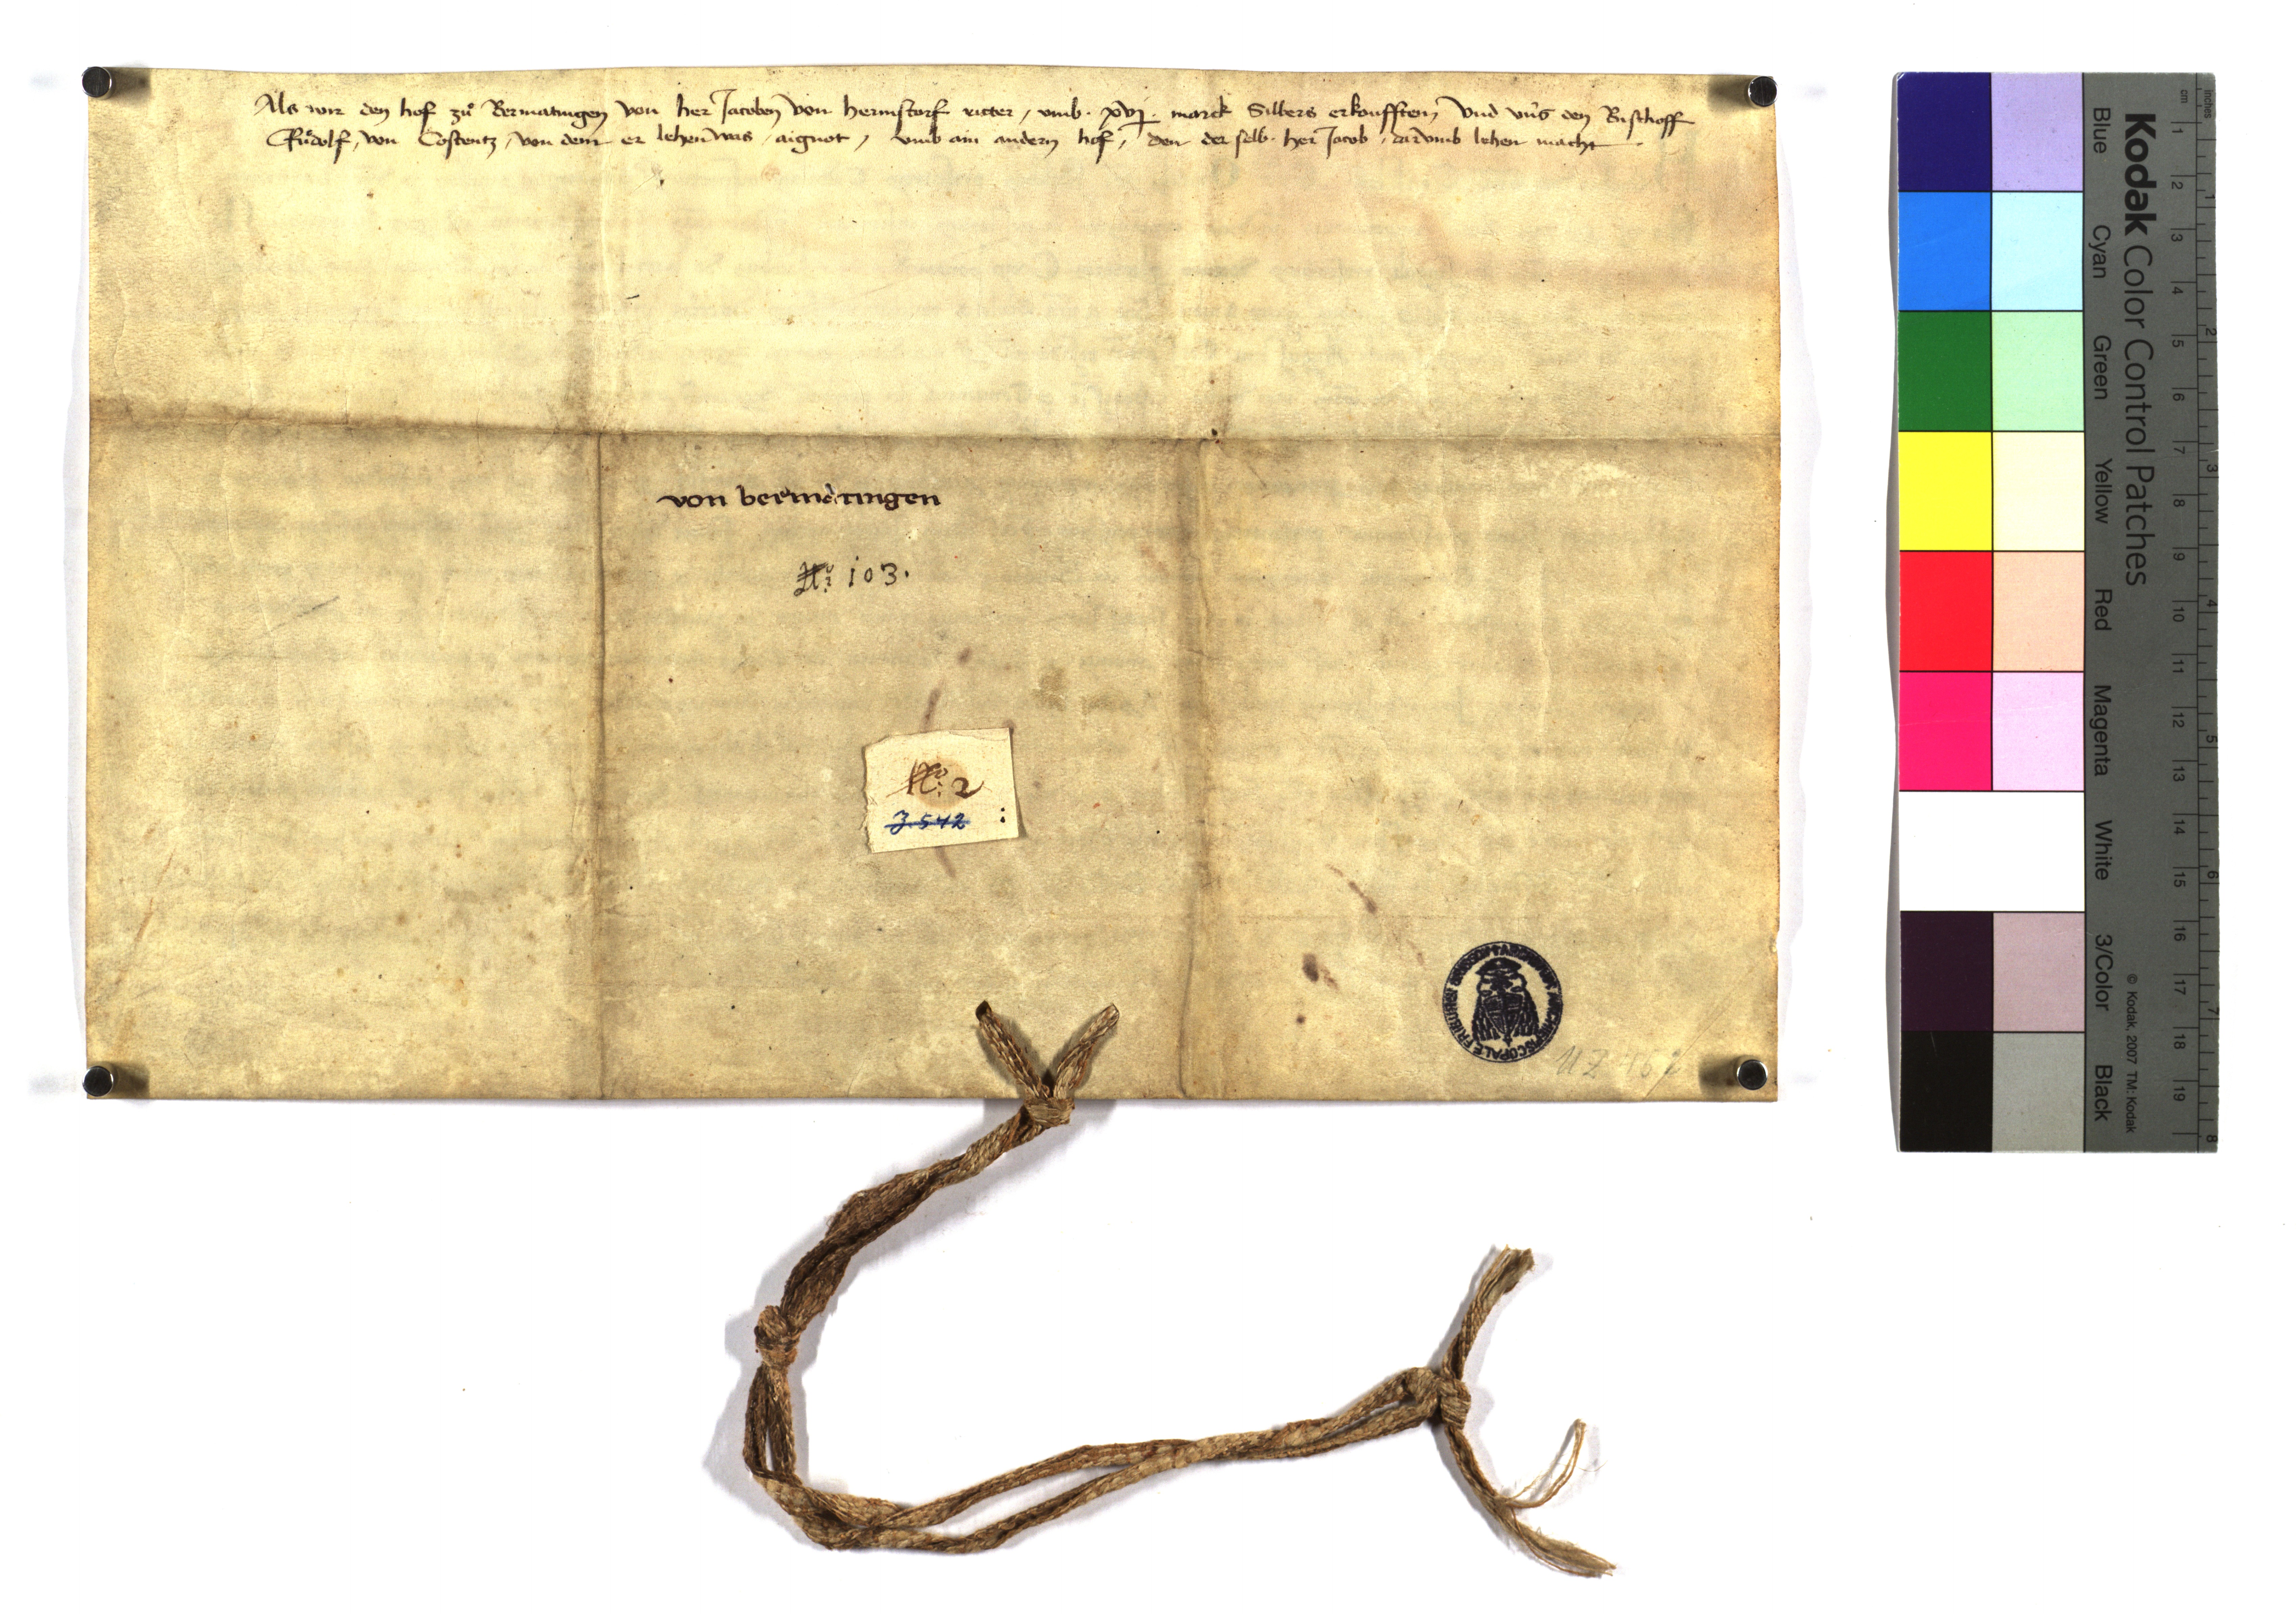 Als wir den hof zuͦ Bermatingen von her Jacoben von hermstorf ritter / umb · xvj · marck Silbers erkoufften / und uns den Bischoff
Ruͦdolf / von Costentz / von dem er lehen was / aignot / umb ain andern hof / den der selb · her Jacob / darumb lehen macht ·
von bermatingen
No: 103.
No: 2
3.542
ARCHIEPISCOPALE FRIBURG
UZ 167
Kodak Color Control Patches
Blue Cyan Green Yellow Red Magenta White 3/Color Black
© Kodak, 2007 TM: Kodak
cm 1 2 3 4 5 6 7 8 9 10 11 12 13 14 15 16 17 18 19
inches 1 2 3 4 5 6 7 8